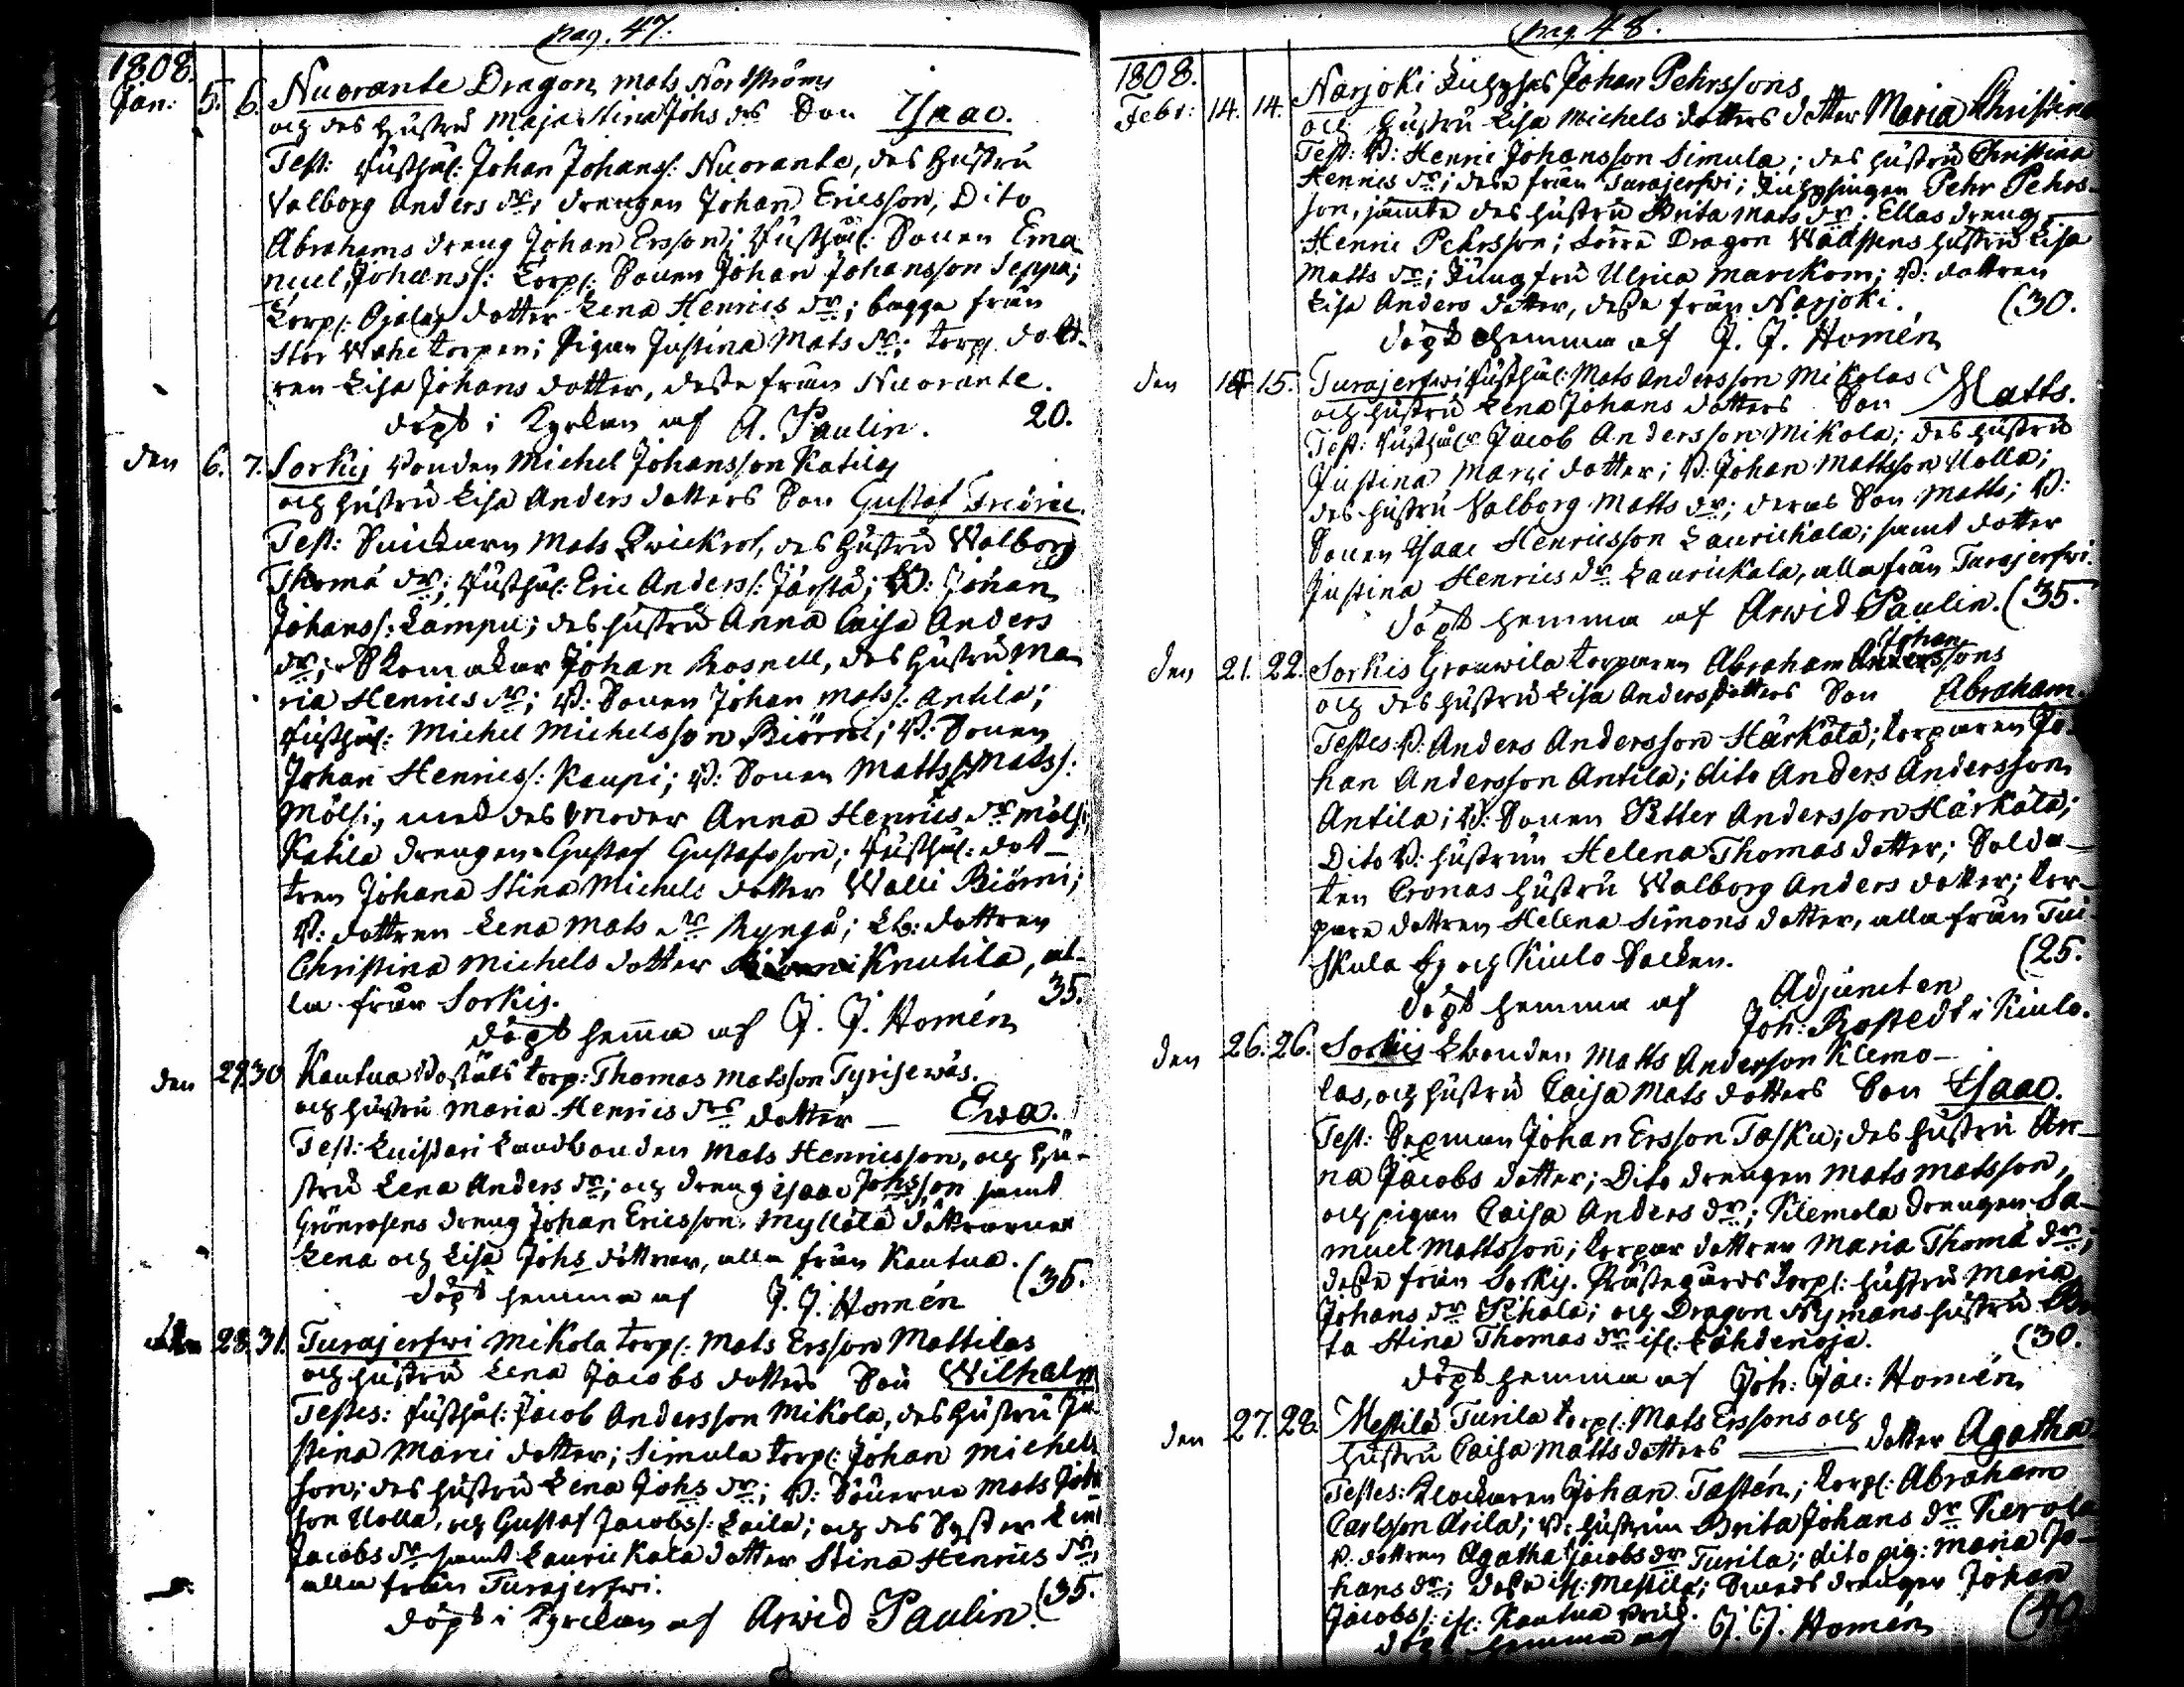 pag. 47.
1808.
Jan: 5. 6. Nuorante Dragon Mats Nordströms
och des hustru Maja Stina Johs des Son Isaac.
Test: Husthål: Johan Johans: Nuorante, des hustru
Valborg Anders dr; drengen Johan Ericsson, Dito
Abrahams dreng Johan Ersson; Husthål: Sonen Ema
nuel Johans: Torp: Sonen Johan Johansson Seppä;
Torp: Ojalas dotter Lena Henrics dr; bägge från
Stor torpen; Pigan Justina Mats dr; torp: dott
ren Lisa Johans dotter, dessa från Nuorante.
döpt i Kyrkan af A. Paulin. 20.
den 6. 7. Sorkis Bonden Michel Johansson Katilas
och hustru Lisa Anders dotters Son Gustaf Fredric.
Test: Snickarn Mats Qwickrot, des hustru Walborg
Thomæ dr; Husthål: Eric Anders: Järstå; B: Johan
Johans: Lampu; des hustru Anna Caisa Anders
dr; Skomakar Johan Rosnell, des hustru Ma
ria Henrics dr; B: Sonen Johan Mats: Antila;
Husthål: Michel Michelsson Biörni; B: Sonen
Johan Henrics: Kaupi; B: Sonen Matts Mats:
Mölsi, med des moder Anna Henrics dr Mölsi,
Katila drengen Gustaf Gustafsson; Husthål: dot-
tren Johana Stina Michels dotter Walli Biörni;
B: dottren Lena Mats dr Ryngä; Lb: dottren
Christina Michels dotter Knutila, al-
la från Sorkis. 35.
döpt hemma af J. J. Homén
den 29. 30. Kautua Bostäls torp: Thomas Matsson Tyrisewäs.
och hustru Maria Henrics drs dotter — Ewa.
Test: Luistari Landbonden Mats Henricsson, och hu-
stru Lena Anders dr; och dreng Isaac Johsson samt
Grönrosens dreng Johan Ericsson, Myllölä döttrarne
Lena och Lisa Johs döttrar, alla från Kautua.
döpt hemma af J. J. Homén (36.
den 28. 31. Turajerfwi Mikola torp: Mats Ersson Mattilas
och hustru Lena Jacobs dotters Son Wilhelm
Testes: Husthål: Jacob Andersson Mikola, des hustru Ju
stina Marci dotter; Simula torp: Johan Michels
son; des hustru Lena Johs dr; B: Sönerne Mats Johs
son Uolla, och Gustaf Jacobs: Laila; och des Syster
Jacobs dr samt Laurickala dotter Stina Henrics dr,
alla från Turajerfwi.
döpt i Kyrkan af Arwid Paulin. (35.
pag. 48.
1808.
Febr: 14. 14. Narjoki Johan Pehrssons
och hustru Lisa Michels dotters dotter Maria Christina
Test: B: Henric Johansson Simula; des hustru Christina
Henrics dr; desse från Turajerfwi; Pehr Pehrs
son, jämte des hustru Brita Mats dr; Ellas dreng
Henric Pehrsson; Dragon Wadstens hustru Lisa
Matts dr; Jungfru Ulrica Marckom; B: dottren
Lisa Anders dotter, desse från Narjoki. (30.
döpt hemma af J. J. Homén
den 14 15. Turajerfwi Husthål: Mats Andersson Mikolas
och hustru Lena Johans dotters Son Matts.
Test: Husthål: Jacob Andersson Mikola; des hustru
Justina Marci dotter; B: Johan Mattsson Uolla;
des hustru Valborg Matts dr; deras Son Matts; B:
Sonen Isaac Henricsson Laurickala; samt dotter
Justina Henrics dr Laurickala, alla från Turajerfwi.
döpt hemma af Arwid Paulin. (35.
den 21. 22. Sorkis Grouwila torparen Abraham Johanssons
och des hustru Lisa Anders dotters Son Abraham.
Testes: B: Anders Andersson Härkälä; torparen Jo-
han Andersson Antila; dito Anders Andersson
Antila; B: Sonen Petter Andersson Härkälä;
Dito B: hustrun Helena Thomas dotter; Solda-
ten Cronas hustru Walborg Anders dotter; tor-
pare dottren Helena Simons dotter, alla från Tui-
skula by och Kiulo Socken. (25.
döpt hemma af Adjuncten
Joh: Rostedt i Kiulo.
den 26. 26. Sorkis Lbonden Matts Andersson Klemo-
las, och hustru Caisa Mats dotters Son Isaac.
Test: Sexman Johan Ersson Tasku; des hustru An-
na Jacobs dotter; Dito drengen Mats Matsson,
och pigan Caisa Anders dr; Klemola drengen Sa-
muel Mattsson; torpar dottren Maria Thomæ dr;
desse från Sorkis. Prästegårds torp: hustru Maria
Johans dr Pihala; och Dragon Nymans hustru Bri
ta Stina Thomas dr if: Lähdenoja. (30.
döpt hemma af Joh: Jac: Homén
den 27. 28. Mestilä Turila torp: Mats Erssons och
hustru Caisa Matts dotters — dotter Agatha
Testes: Klockaren Johan Tasten; torp: Abraham
Carlsson Arila; B: hustrun Brita Johans dr Kerola
B: dottren Agatha Jacobs dr Turila; dito pig: Maria Jo-
hans dr; desse if: Mestilä; Smeds drengen Johan
Jacobs: if: Kautua bruk.
döpt hemma af J. J. Homén (40.